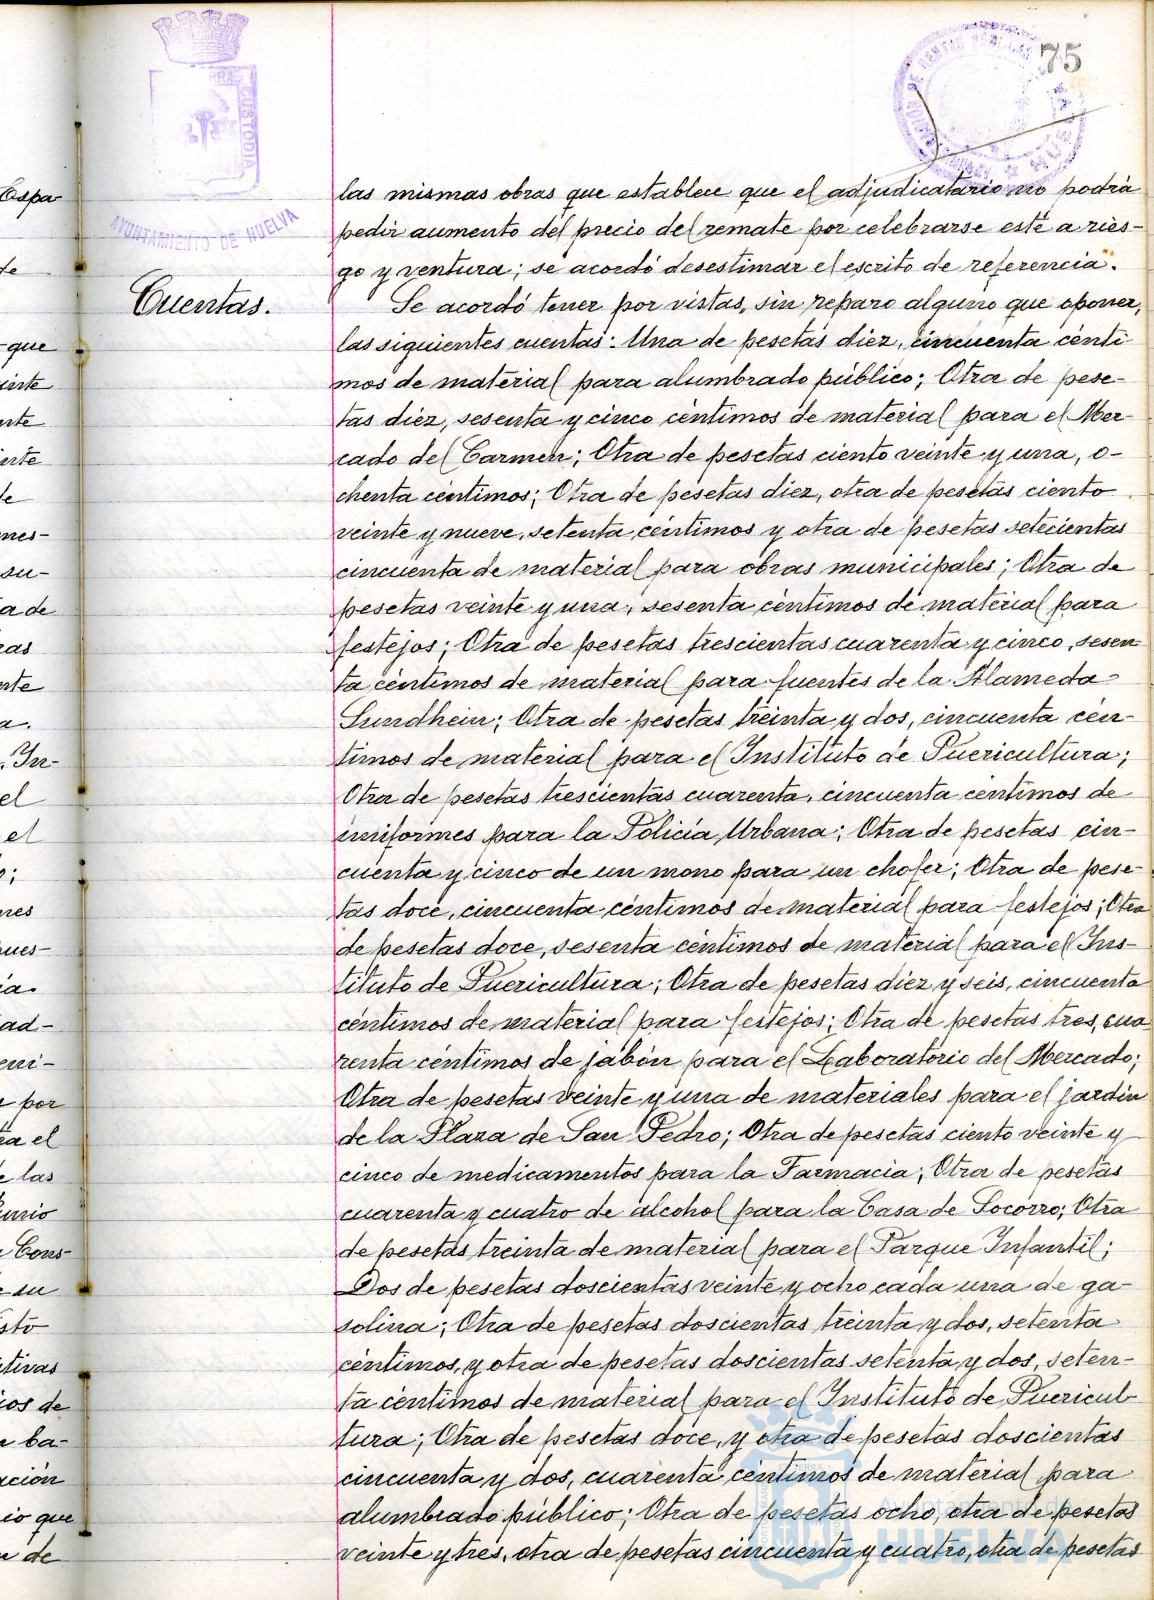 75
AYUNTAMIENTO DE HUELVA
CUSTODIA
HUELVA
Cuentas.
las mismas obras que establece que el adjudicatario no podrá
pedir aumento del precio del remate por celebrarse este a ries-
go y ventura; se acordó desestimar el escrito de referencia.
Se acordó tener por vistas, sin reparo alguno que oponer,
las siguientes cuentas: Una de pesetas diez, cincuenta cénti-
mos de material para alumbrado público; Otra de pese-
tas diez, sesenta y cinco céntimos de material para el Mer-
cado del Carmen; Otra de pesetas ciento veinte y una, o-
chenta céntimos; Otra de pesetas diez, otra de pesetas ciento
veinte y nueve, setenta céntimos y otra de pesetas setecientas
cincuenta de material para obras municipales; Otra de
pesetas veinte y una, sesenta céntimos de material para
festejos; Otra de pesetas trescientas cuarenta y cinco, sesen
ta céntimos de material para fuentes de la Alameda
Sundhein; Otra de pesetas treinta y dos, cincuenta cén-
timos de material para el Instituto de Puericultura;
Otra de pesetas trescientas cuarenta, cincuenta céntimos de
uniformes para la Policía Urbana; Otra de pesetas cin-
cuenta y cinco de un mono para un chofer; Otra de pese-
tas doce, cincuenta céntimos de material para festejos; Otra
de pesetas doce, sesenta céntimos de material para el Ins-
tituto de Puericultura; Otra de pesetas diez y seis, cincuenta
céntimos de material para festejos; Otra de pesetas tres, cua
renta céntimos de jabón para el Laboratorio del Mercado;
Otra de pesetas veinte y una de materiales para el jardin
de la Plaza de San Pedro; Otra de pesetas ciento veinte y
cinco de medicamentos para la Farmacia; Otra de pesetas
cuarenta y cuatro de alcohol para la Casa de Socorro; Otra
de pesetas treinta de material para el Parque Infantil;
Dos de pesetas doscientas veinte y ocho cada una de ga-
solina; Otra de pesetas doscientas treinta y dos, setenta
céntimos, y otra de pesetas doscientas setenta y dos, seten-
ta céntimos de material para el Instituto de Puericul
tura; Otra de pesetas doce, y otra de pesetas doscientas
cincuenta y dos, cuarenta céntimos de material para
alumbrado público; Otra de pesetas ocho, otra de pesetas
veinte y tres, otra de pesetas cincuenta y cuatro, otra de pesetas
Ayuntamiento de
HUELVA